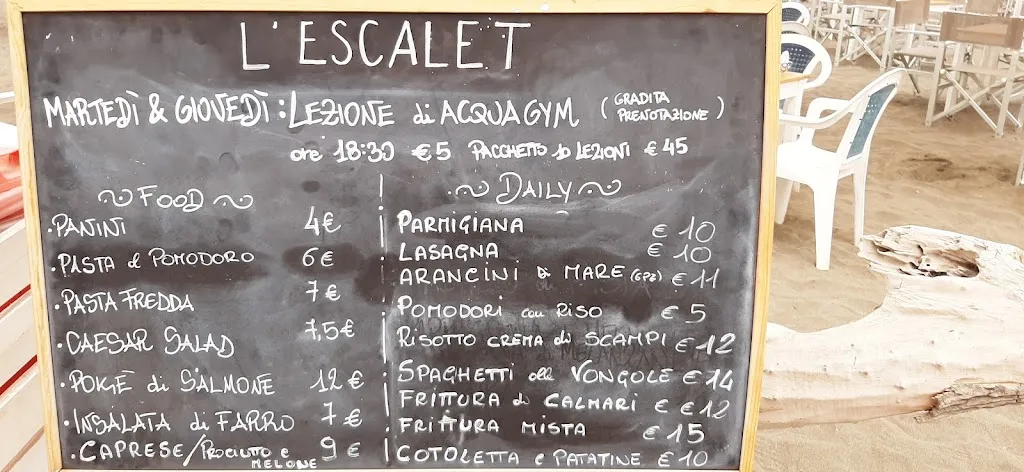 L'ESCALET
MARTEDÌ & GIOVEDÌ : LEZIONE di ACQUAGYM (GRADITA PRENOTAZIONE)
ore 18:30 €5 PACCHETTO 10 LEZIONI €45
FOOD
• PANINI 4€
• PASTA al POMODORO 6€
• PASTA FREDDA 7€
• CAESAR SALAD 7,5€
• POKÈ di SALMONE 12€
• INSALATA di FARRO 7€
• CAPRESE/PROCIUTTO e MELONE 9€
DAILY
PARMIGIANA €10
LASAGNA €10
ARANCINI di MARE (6PZ) €11
POMODORI con RISO €5
RISOTTO CREMA di SCAMPI €12
SPAGHETTI alle VONGOLE €14
FRITTURA di CALMARI € €12
FRITTURA MISTA €15
COTOLETTA e PATATINE €10